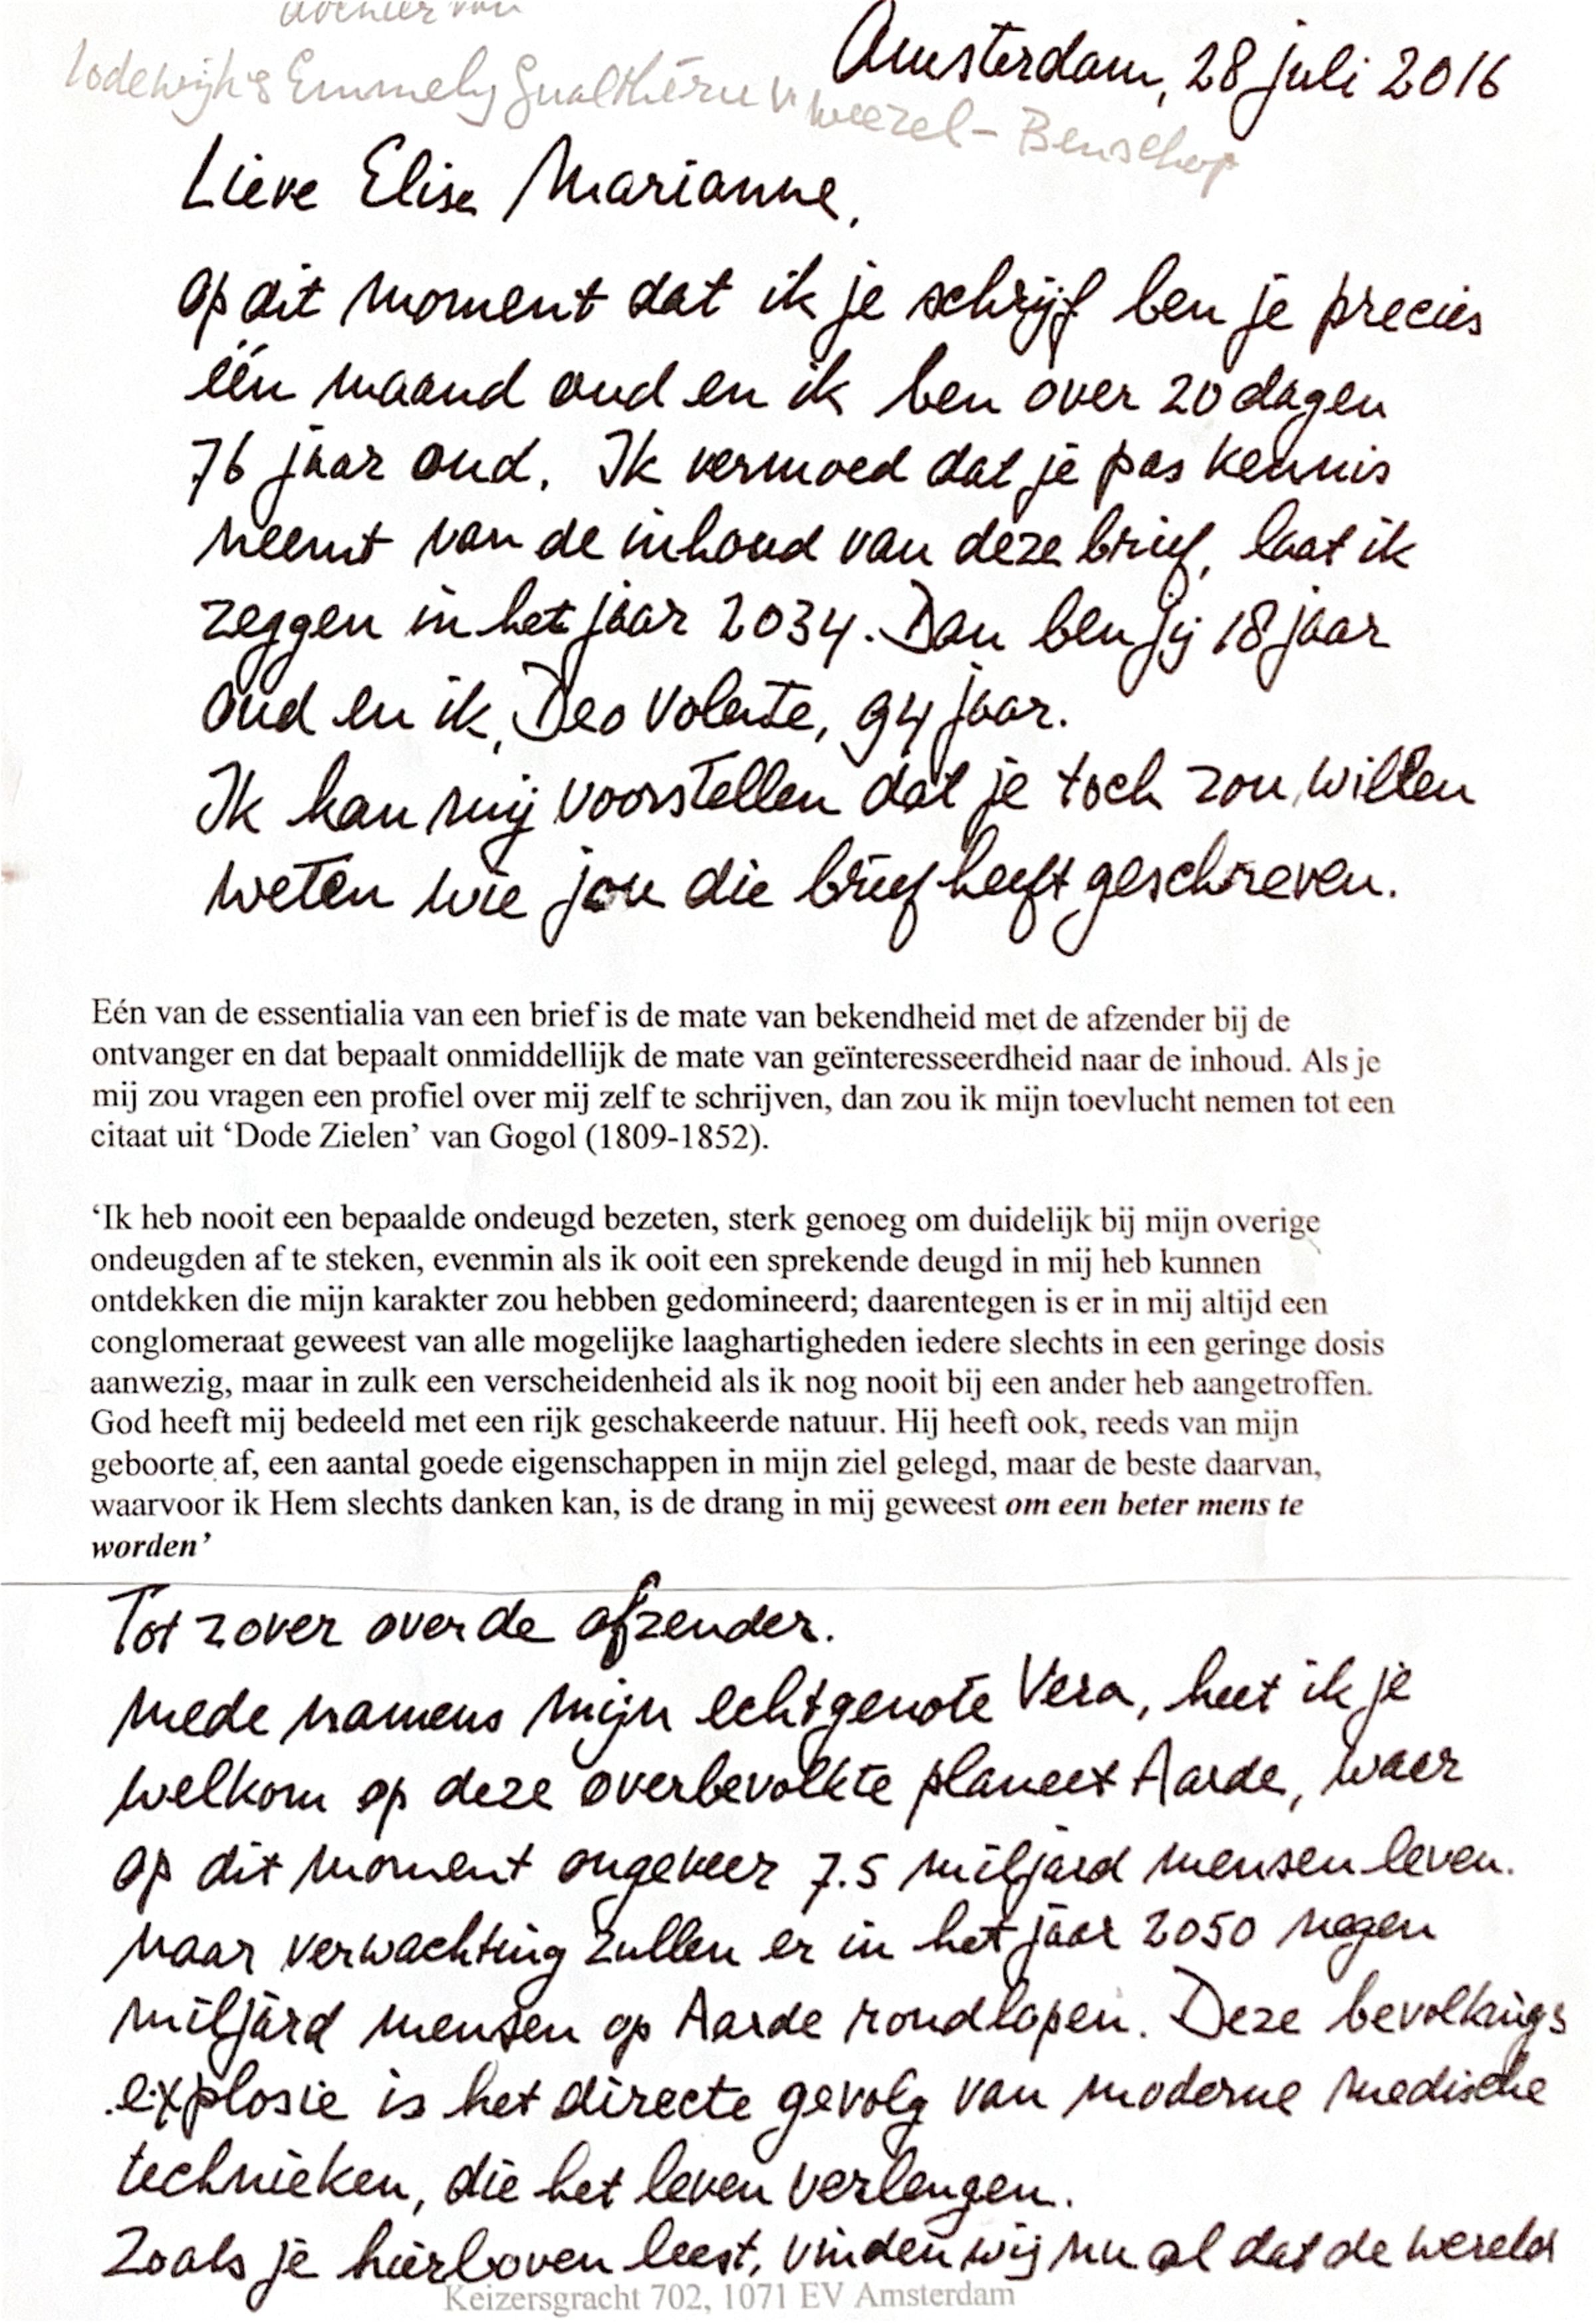 dochter van
Amsterdam, 28 juli 2016
Lodewijk & Emmely Gualthérie v. Weezel - Benschop
Lieve Elise Marianne,
op dit moment dat ik je schrijf ben je precies
één maand oud en ik ben over 20 dagen
76 jaar oud. Ik vermoed dat je pas kennis
neemt van de inhoud van deze brief, laat ik
zeggen in het jaar 2034. Dan ben jij 18 jaar
oud en ik, Deo Volente, 94 jaar.
Ik kan mij voorstellen dat je toch zou willen
weten wie jou die brief heeft geschreven.
Eén van de essentialia van een brief is de mate van bekendheid met de afzender bij de
ontvanger en dat bepaalt onmiddellijk de mate van geïnteresseerdheid naar de inhoud. Als je
mij zou vragen een profiel over mij zelf te schrijven, dan zou ik mijn toevlucht nemen tot een
citaat uit ‘Dode Zielen’ van Gogol (1809-1852).
‘Ik heb nooit een bepaalde ondeugd bezeten, sterk genoeg om duidelijk bij mijn overige
ondeugden af te steken, evenmin als ik ooit een sprekende deugd in mij heb kunnen
ontdekken die mijn karakter zou hebben gedomineerd; daarentegen is er in mij altijd een
conglomeraat geweest van alle mogelijke laaghartigheden iedere slechts in een geringe dosis
aanwezig, maar in zulk een verscheidenheid als ik nog nooit bij een ander heb aangetroffen.
God heeft mij bedeeld met een rijk geschakeerde natuur. Hij heeft ook, reeds van mijn
geboorte af, een aantal goede eigenschappen in mijn ziel gelegd, maar de beste daarvan,
waarvoor ik Hem slechts danken kan, is de drang in mij geweest om een beter mens te
worden’
Tot zover over de afzender.
Mede namens mijn echtgenote Vera, heet ik je
welkom op deze overbevolkte planeet Aarde, waar
op dit moment ongeveer 7.5 miljard mensen leven.
Naar verwachting zullen er in het jaar 2050 negen
miljard mensen op Aarde rondlopen. Deze bevolkings
explosie is het directe gevolg van moderne medische
technieken, die het leven verlengen.
Zoals je hierboven leest, vinden wij nu al dat de wereld
Keizersgracht 702, 1071 EV Amsterdam